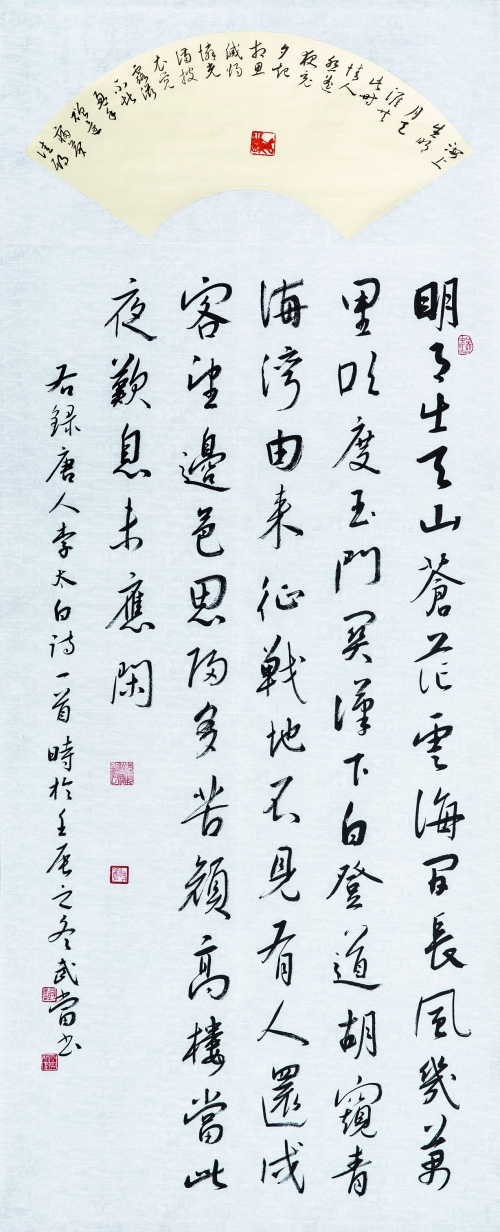 海上
生明
月天
涯共
此时
情人
怨遥
夜竟
夕起
相思
滅燭
憐光
滿披
衣覺
露滋
不堪
盈手
贈還寢
佳期
明月出天山蒼茫雲海間長風幾萬
里吹度玉門関漢下白登道胡窺青
海灣由来征戰地不見有人還戍
客望邊邑思歸多苦顏高樓當此
夜歎息未應閑
右録唐人李太白诗一首時於壬辰之冬武當书